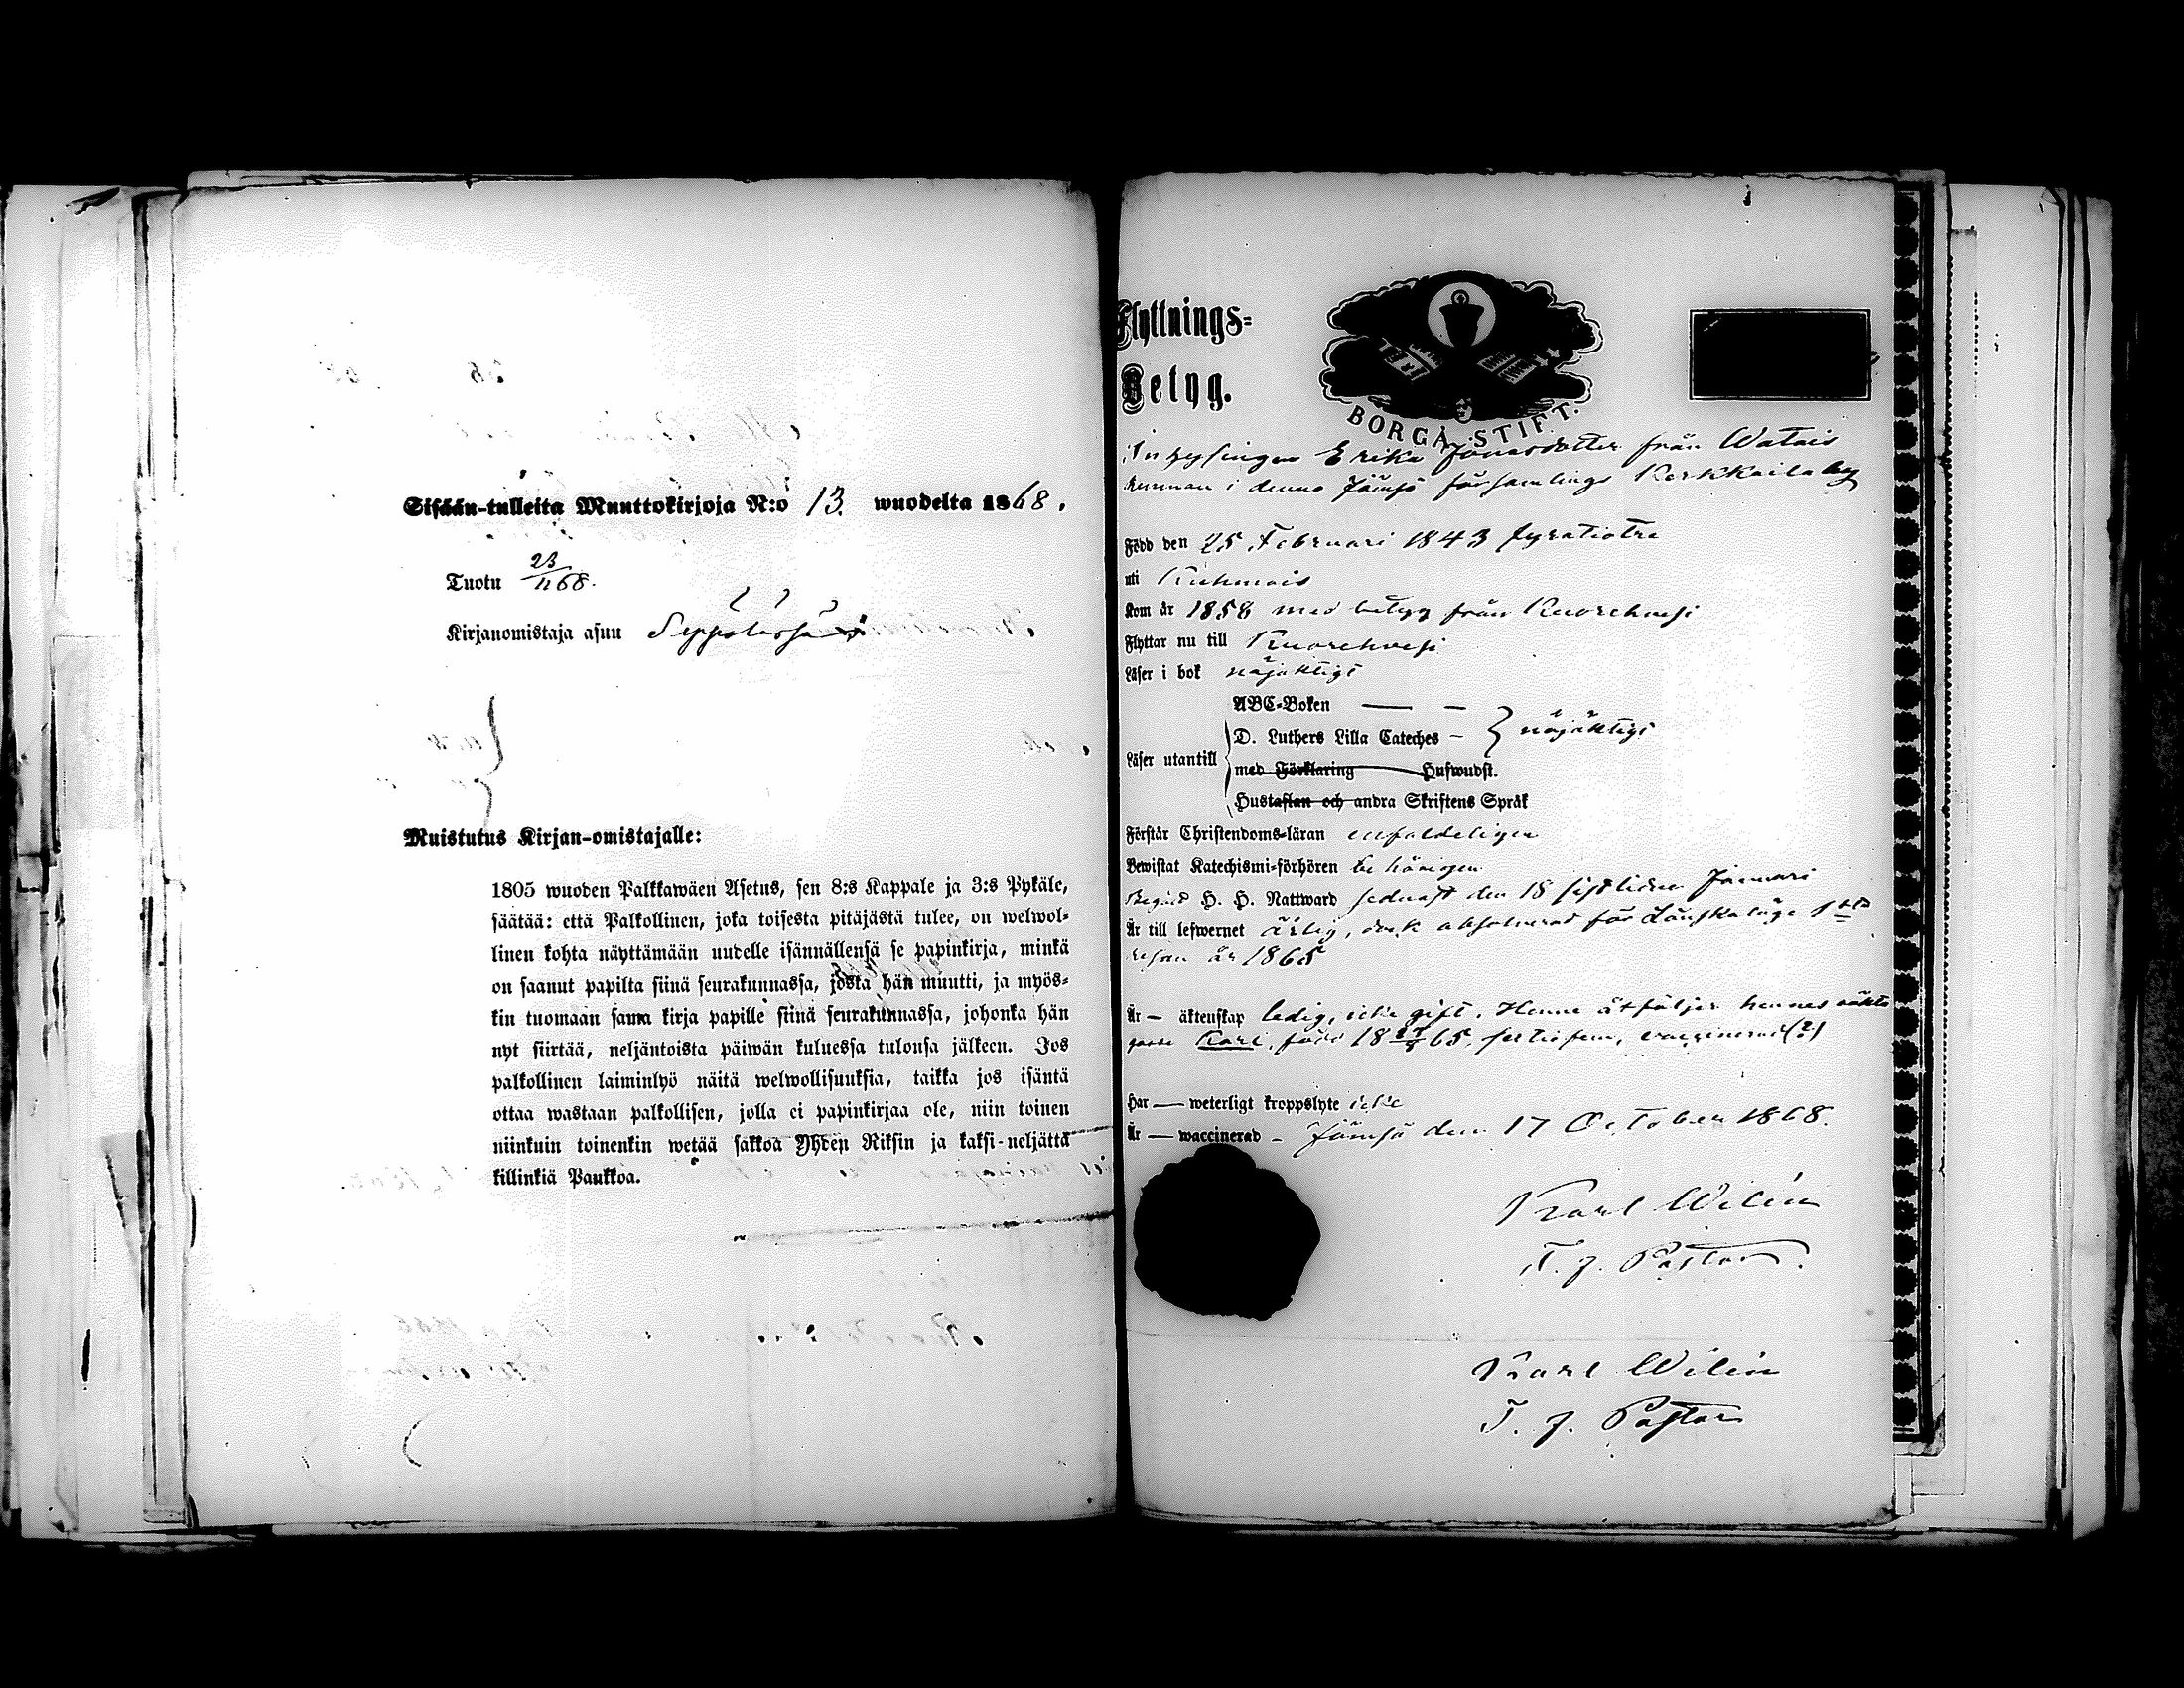 Sisään-tulleita Muuttokirjoja N:o 13. wuodelta 1868.
Tuotu 23/11 68.
Kirjanomistaja asuu
Muistutus Kirjan-omistajalle:
1805 wuoden Palkkawäen Asetus, sen 8:s Kappale ja 3:s Pykäle,
säätää: että Palkollinen, joka toisesta pitäjästä tulee, on welwol-
linen kohta näyttämään uudelle isännällensä se papinkirja, minkä
on saanut papilta siinä seurakunnassa, josta hän muutti, ja myös-
kin tuomaan sama kirja papille siinä seurakunnassa, johonka hän
nyt siirtää, neljäntoista päiwän kuluessa tulonsa jälkeen. Jos
palkollinen laiminlyö näitä welwollisuuksia, taikka jos isäntä
ottaa wastaan palkollisen, jolla ei papinkirjaa ole, niin toinen
niinkuin toinenkin wetää sakkoa Yhden Riksin ja kaksi-neljättä
killinkiä Pankkoa.
Flyttnings-
Betyg.
BORGÅ STIFT.
Inhysingen Erika Jonasdotter från Watais
hemman i denna Jämsä församlings Kerkkaila by
Född den 25 Februari 1843 fyratiotre
uti Kuhmois
Kom år 1858 med betyg från Kuorehvesi
Flyttar nu till Kuorehvesi
Läser i bok nöjaktigt
Läser utantill
ABC-Boken — —
D. Luthers Lilla Cateches – } nöjaktigt
med Förklaring Hufwudst.
Hustaflan och andra Skriftens Språk
Förstår Christendoms-läran enfaldeligen
Bewistat Katechismi-förhören behörigen
Begått H. H. Nattward sednast den 18 sistliden Januari
Är till lefwernet ärlig, dock absolverad för Lönskaläge 1sta
resan år 1865
Är — äktenskap ledig, icke gift. Henne åtföljer hennes oäkta
gosse Karl, född 18 65, sextiofem, vaccinerad (?)
Har — weterligt kroppslyte icke
Är — waccinerad – Jämsä den 17 October 1868.
Karl Wilén
T. f. Pastor.
Karl Wilén
T. f. Pastor